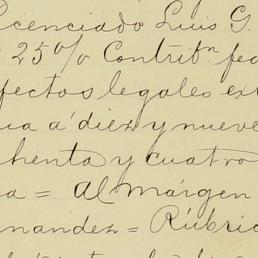 Licenciado Luis G.
25% Contribn. fe
fectos legales ex
ua a diez y nueve
henta y cuatro
a = Al márgen
nandez = Rúbric